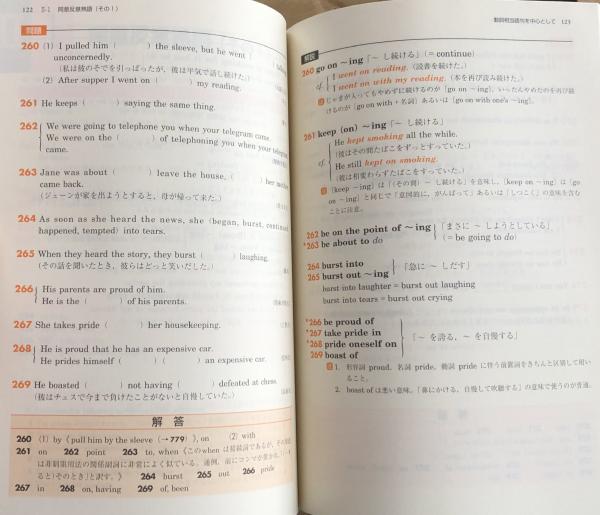 122 5-1 同意反意熟語(その1)
問題
260 (1) I pulled him ( ) the sleeve, but he went ( )
unconcernedly.
(私は彼のそでを引っぱったが,彼は平気で話し続けた。)
(2) After supper I went on ( ) my reading.
261 He keeps ( ) saying the same thing.
262 We were going to telephone you when your telegram came.
We were on the ( ) of telephoning you when your telegram
came.
263 Jane was about ( ) leave the house, ( ) her mother
came back.
(ジェーンが家を出ようとすると,母が帰って来た。)
264 As soon as she heard the news, she (began, burst, continued,
happened, tempted) into tears.
265 When they heard the story, they burst ( ) laughing.
(その話を聞いたとき,彼らはどっと笑いだした。)
266 His parents are proud of him.
He is the ( ) of his parents.
267 She takes pride ( ) her housekeeping.
268 He is proud that he has an expensive car.
He prides himself ( ) ( ) an expensive car.
269 He boasted ( ) not having ( ) defeated at chess.
(彼はチェスで今まで負けたことがないと自慢していた。)
解答
260 (1) by《pull him by the sleeve (→779)》, on (2) with
261 on 262 point 263 to, when《このwhen は接続詞であるが,
は非制限用法の関係副詞に非常によく似ている。通例,前にコンマが
ると)そのとき」と訳す。》 264 burst 265 out 266 pride
267 in 268 on, having 269 of, been
動詞相当語句を中心として 123
解説
260 go on ~ing「~し続ける」(= continue)
cf. I went on reading.(読書を続けた。)
I went on with my reading.(本を再び読み続けた。)
注 じゃまが入ってもやめずに続けるのが「go on ~ing」,いったんやめたのを再び続
けるのが「go on with + 名詞」あるいは「go on with one's ~ing」。
261 keep (on) ~ing「~し続ける」
cf. He kept smoking all the while.
(彼はその間たばこをずっとすっていた。)
He still kept on smoking.
(彼は相変わらずたばこをすっていた。)
注「keep ~ing」は「(その間)~し続ける」を意味し,「keep on ~ing」は「go
on ~ing」と同じで「意図的に,がんばって」あるいは「しつこく」の意味を含む
ことに注意。
262 be on the point of ~ing「まさに~しようとしている」
*263 be about to do (= be going to do)
264 burst into
265 burst out ~ing「急に~しだす」
burst into laughter = burst out laughing
burst into tears = burst out crying
*266 be proud of
*267 take pride in
*268 pride oneself on「~を誇る,~を自慢する」
269 boast of
注 1. 形容詞 proud, 名詞 pride, 動詞 pride に伴う前置詞をきちんと区別して用い
ること。
2. boast of は悪い意味。「鼻にかける,自慢して吹聴する」の意味で使うのが普通。